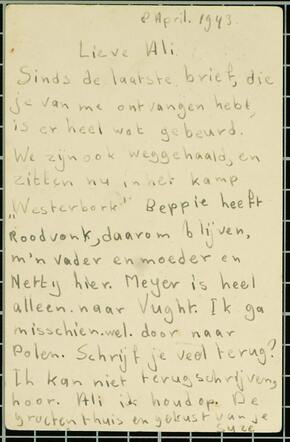 2 April. 1943.
Lieve Ali.
Sinds de laatste brief, die
je van me ontvangen hebt,
is er heel wat gebeurd.
We zijn ook weggehaald, en
zitten nu in het kamp
„Westerbork" Beppie heeft
Roodvonk, daarom blijven,
m'n vader en moeder en
Netty hier. Meyer is heel
alleen. naar Vught. Ik ga
misschien. wel. door naar
Polen. Schrijft je veel terug?
Ik kan niet terugschrijven,
hoor. Ali ik houd op. De
groeten thuis en gekust van je